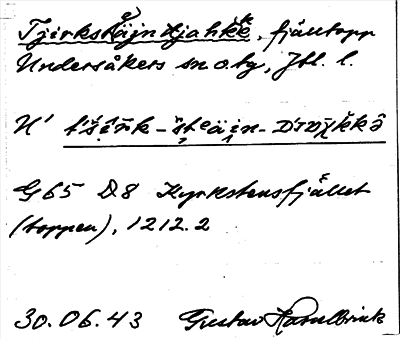 Tjirkstäjntjahke, fjälltopp
Undersåkers sn o. ty, Jtl. l.
H'
G65 D8 Kyrkstensfjället
(toppen), 1212.2
30.06.43 Gustav Hasselbrink